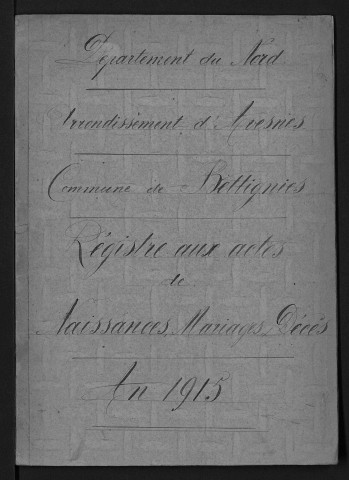 Département du Nord
Arrondissement d'Avesnes
Commune de Bettignies
Régistre aux actes
de
Naissances, Mariages, Décès
An 1915